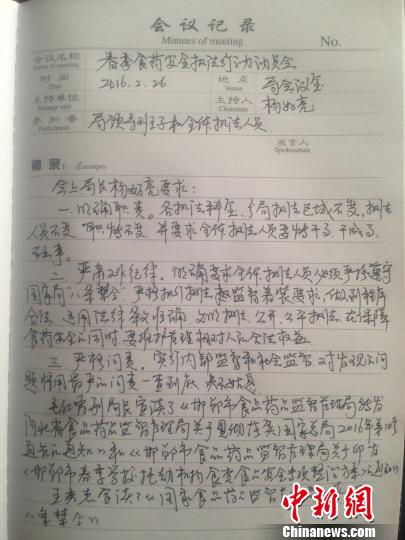 会议记录
Minutes of meeting
No.
会议名称 春季食药安全执法行动动员会
Name of meeting
时间 2016.2.26 地点 局会议室
Time Venue
主持单位 主持人 杨如亮
Manage unit Chairman
参加者 局领导班子和全体执法人员
Participants
发言人
Spokesman
摘录: Excerpts
会上局长杨如亮要求:
一、明确职责。各执法科室、分局执法区域不变,执法
人员不变,职特不变,并要求全体执法人员要特干事、干成事、
不出事。
二、严肃工作纪律。明确要求全体执法人员必须严格遵守
国家局"八条禁令",严格执行执法监督着装要求,做到程序
合法,适用法律条款准确,文明执法、公开、公平执法,在保障
食药安全的同时,要维护管理相对人的合法权益。
三、严格问责。实行内部监督和社会监督,对发现的问
题将用最严的问责一查到底,决不姑息
毛红岩副局长宣读了《邯郸市食品药品监督管理局转发
河北省食品药品监督管理局关于贯彻落实国家总局2016年第10号
通告的通知》和《邯郸市食品药品监督管理局关于印发
《邯郸市春季学校托幼机构食堂食品安全专项整治方案》的通知》
宣读了《国家食品药品监督管理
八条禁令》
中新网
Chinanews.com